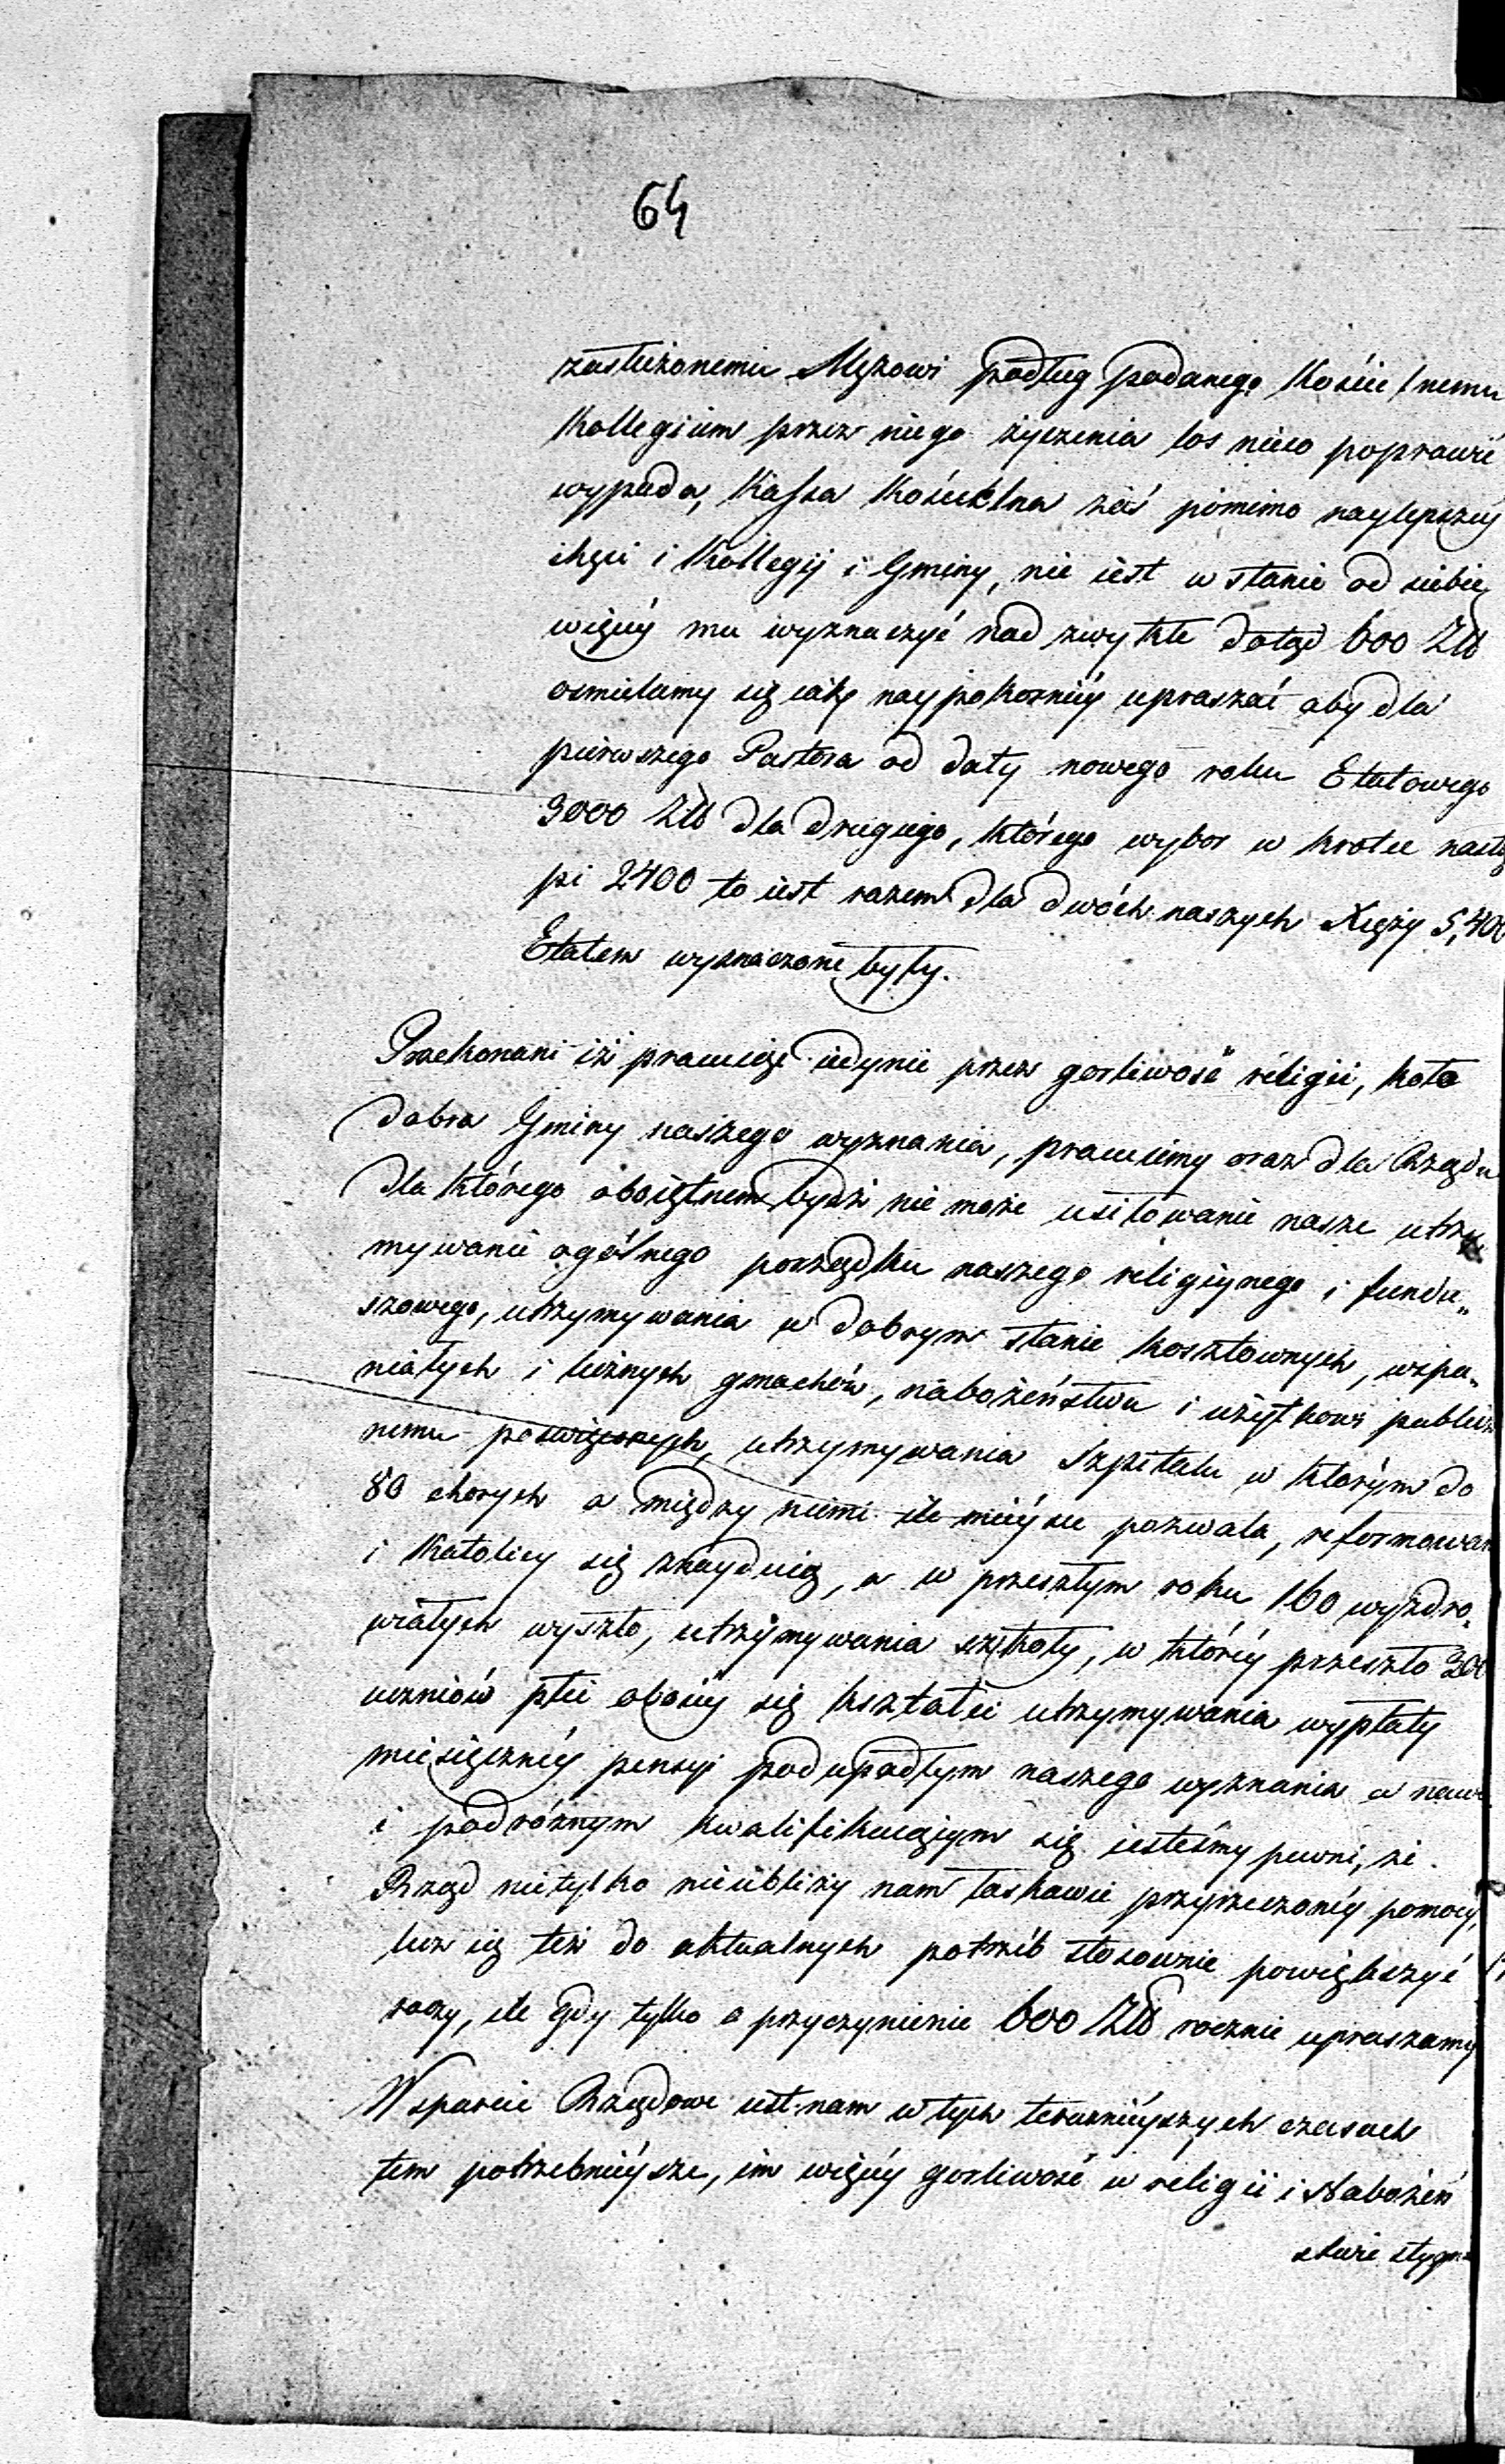 64
zasłużonemu Mężowi podług podanego Kościelnemu
Kollegium przez niego życzenia los nieco poprawić
wypada, Kassa Kościelna zaś pomimo naylepszey
chęci i Kollegij i Gminy, nie iest w stanie od siebie
więcéy mu wyznaczyć nad zwykłe dotąd 600 Zł
ośmielamy się iak naypokorniéy upraszać aby dla
pierwszego Pastora od daty nowego roku Etatowego
3000 Zł dla drugiego, którego wybor w krotce nastą
pi 2400 to iest razem dla dwóch naszych Xięży 5,400
Etatem wyznaczone były.
Przekonani iż pracuiąc iedynie przez gorliwość religii, koło
dobra Gminy naszego wyznania, pracuiemy oraz dla Rządu
dla którego oboiętnem bydź nie może usiłowanie nasze utrzy
mywanie ogólnego porządku naszego religiynego i fundu„
szowego, utrzymywania w dobrym stanie kosztownych, wspa„
niałych i licznych gmachów, nabożeństwu i użytkowi publicz
nemu poświęconych, utrzymywania Szpitalu w którym do
80 chorych a między niemi ile mieysce pozwala, reformowan
i Katolicy się znayduią, a w przeszłym roku 160 wyzdro„
wiałych wyszło, utrzymywania szkoły, w któréy przeszło 300
uczniów płci oboiéy się kształci utrzymywania wypłaty
miesięcznéy pensyi podupadłym naszego wyznania a nawe
i podróżnym kwalifikuiącym się iesteśmy pewni, że
Rząd nietylko nieubliży nam łaskawie przyrzeczonéy pomocy,
lecz ią też do aktualnych potrzéb stosownie powiększyć
raczy, ile gdy tylko o przyczynienie 600 Zł rocznie upraszamy
Wsparcie Rządowe iest nam w tych teraznieyszych czasach
tem potrzebnieysze, im więcéy gorliwość w religii i Nabożeń
stwie stygn